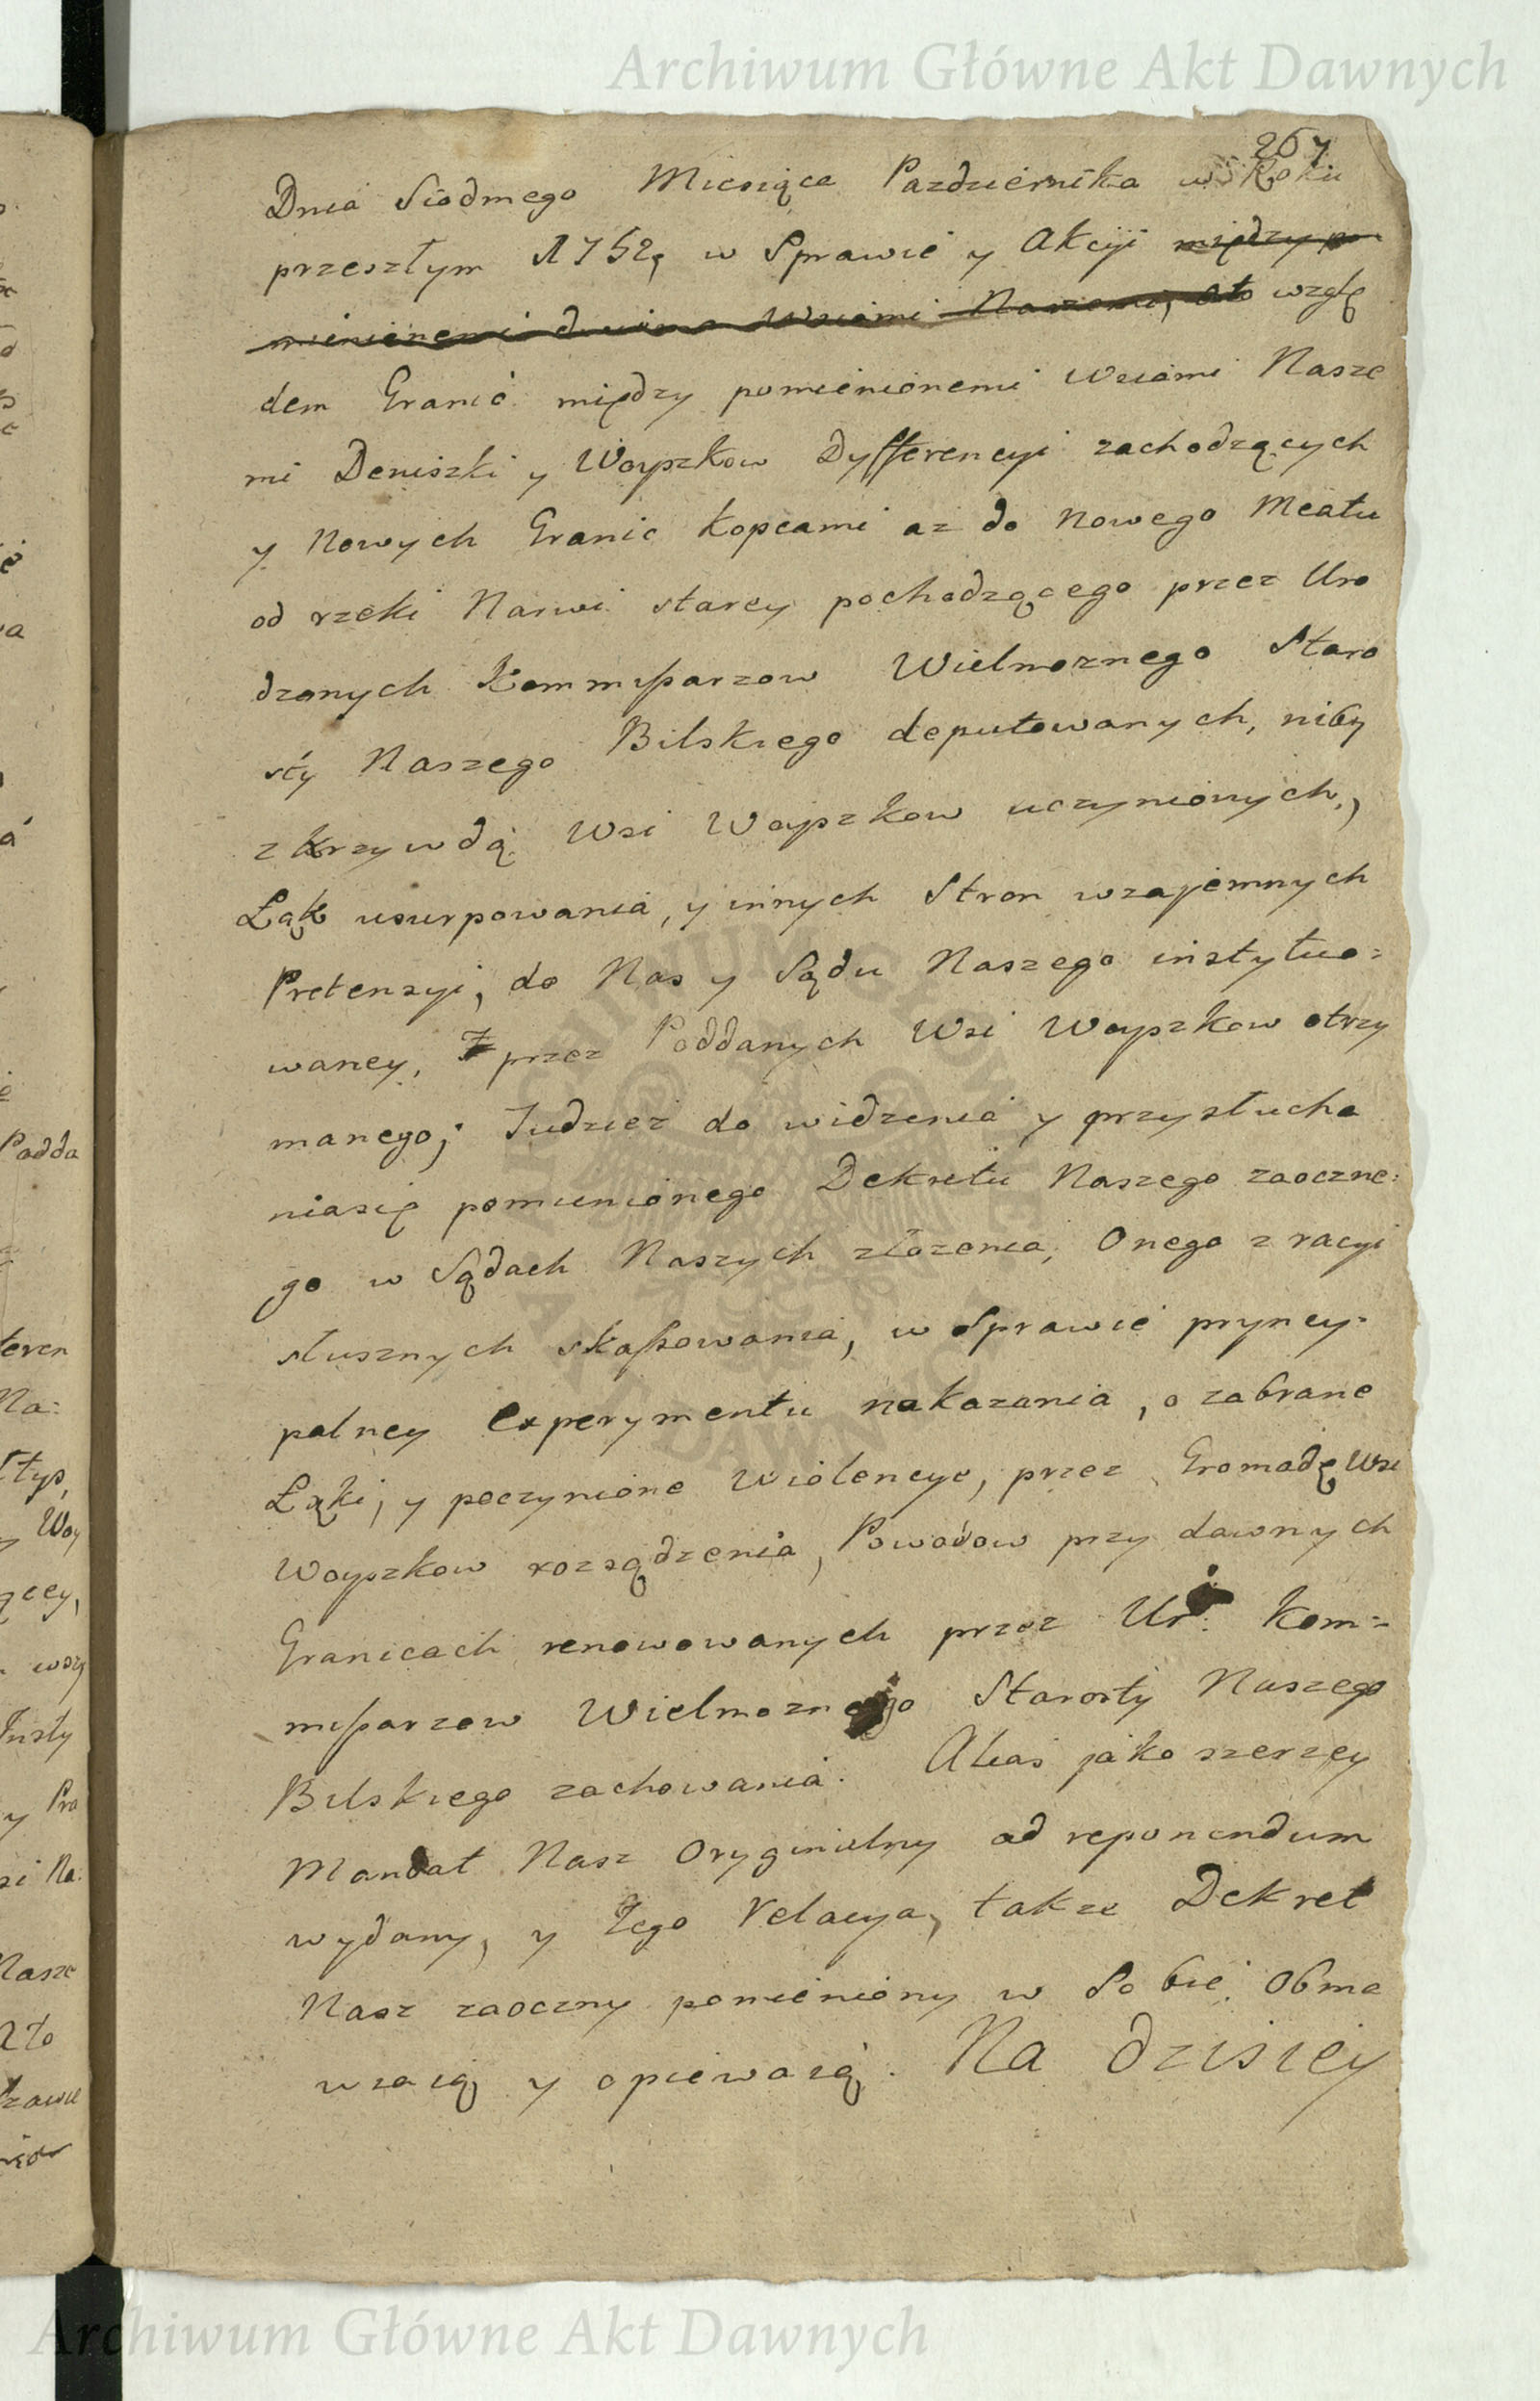 Archiwum Główne Akt Dawnych
267
Dnia Siodmego Miesiąca Pazdziernika w Roku
przeszłym 1752, w Sprawie y Akcyi między po
mienionemi dwiema Wsiami Naszemi, ato wzglę
dem Granic między pomienionemi Wsiami Nasze
mi Deniszki y Woyszkow Dyfferencyi zachodzących
y Nowych Granic kopcami az do Nowego Meatu
od rzeki Narwi starey pochodzącego przez Uro
dzonych Kommißarzow Wielmoznego Staro
sty Naszego Bilskiego deputowanych, niby
z krzywdą Wsi Woyszkow uczynionych,
Łąk usurpowania, y innych Stron wzajemnych
Pretensyi, do Nas y Sądu Naszego instytuo=
waney, przez Poddanych Wsi Woyszkow otrzy
manego; Tudziez do widzenia y przysłucha
niasię pomienionego Dekretu Naszego zaoczne=
go w Sądach Naszych złozenia, Onego z racyi
słusznych skaßowania, w Sprawie pryncy=
palney experymentu nakazania, o zabrane
Łąki, y poczynione Wiolencye, przez Gromadę Wsi
Woyszkow rozsądzenia, Powodow przy dawnych
Granicach renowowanych przez Ur: Kom=
mißarzow Wielmoznego Starosty Naszego
Bilskiego zachowania. Alias jako szerzey
Mandat Nasz Oryginalny ad reponendum
wydany, y Jego Relacya, takze Dekret
Nasz zaoczny pomieniony w Sobie Obma
wiaią y opiewaią. Na dzisiey
Padda
Na:
Woy
Insty
y Pra
Nasze
Archiwum Główne Akt Dawnych